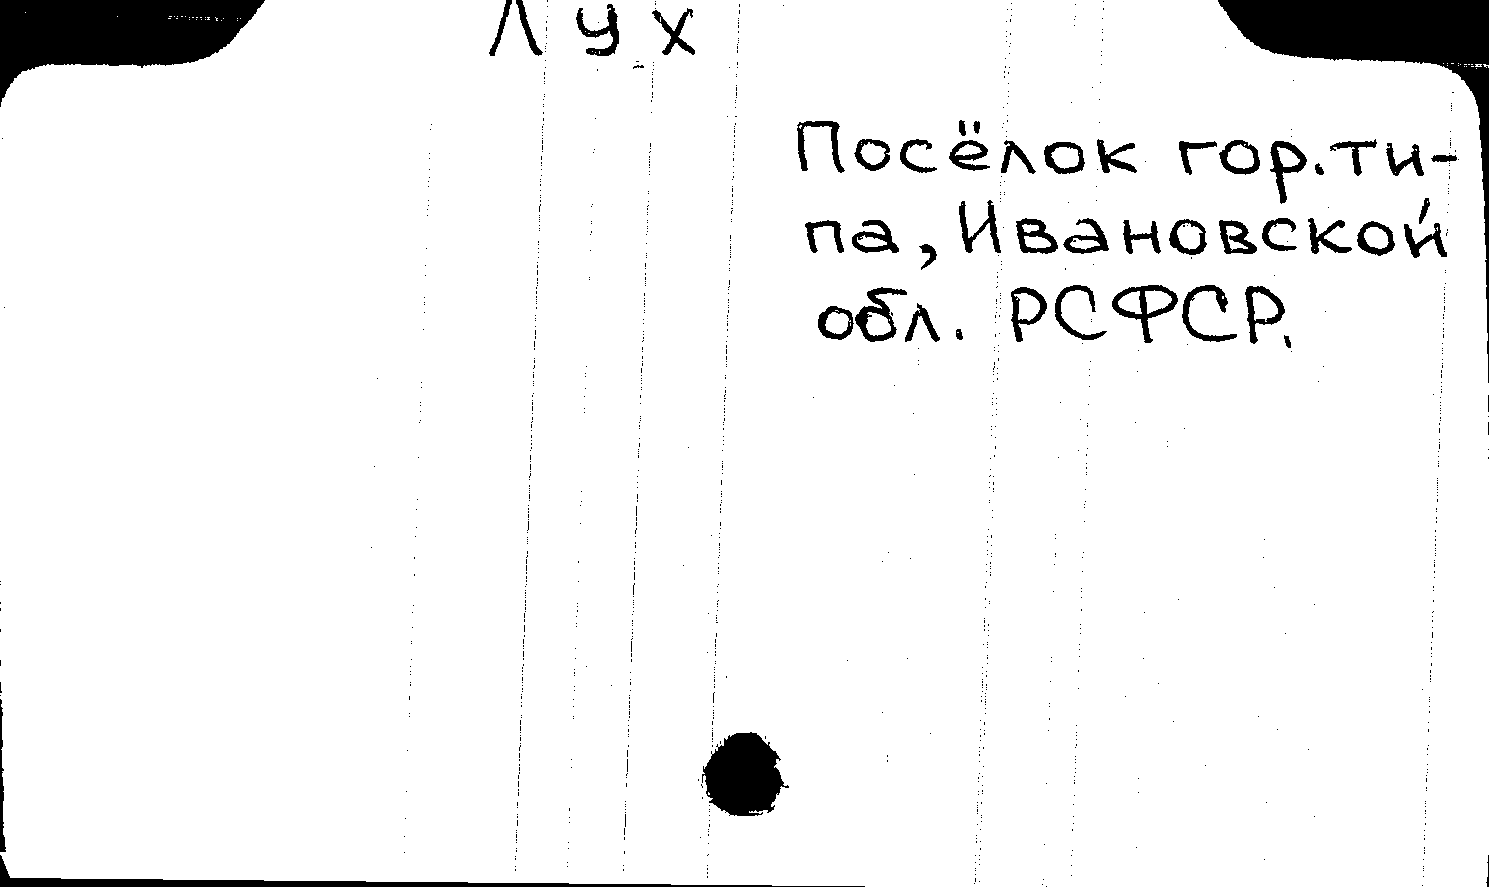 Лух
Посёлок гор.ти-
па, Ивановской
обл. РСФСР.